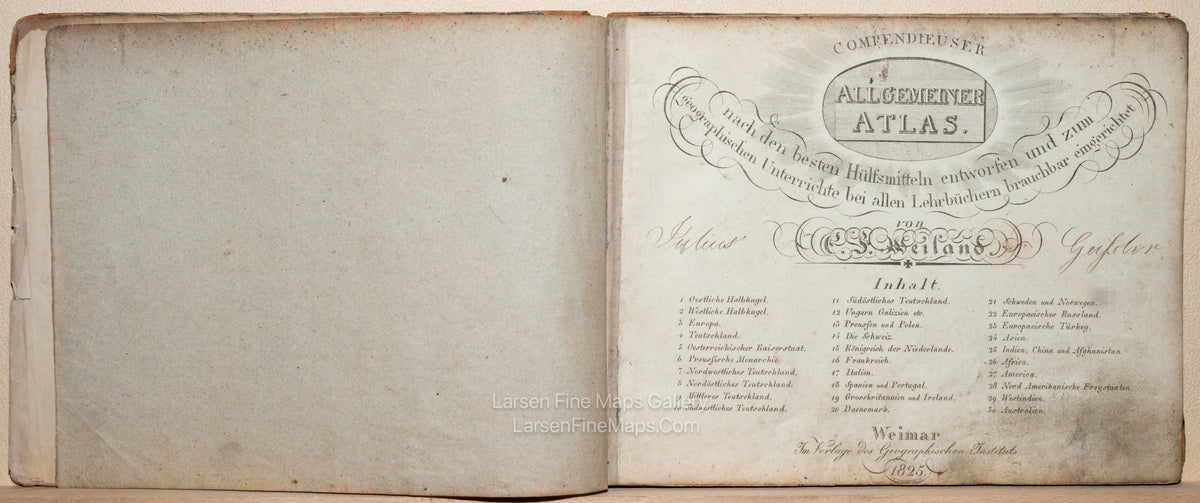 COMPENDIEUSER
ALLGEMEINER
ATLAS.
nach den besten Hülfsmitteln entworfen und zum
geographischen Unterrichte bei allen Lehrbüchern brauchbar eingerichtet
von
C. F. Weiland
Julius
Inhalt.
1 Oestliche Halbkugel.
2 Westliche Halbkugel.
3 Europa.
4 Teutschland.
5 Oesterreichischer Kaiserstaat.
6 Preussische Monarchie.
7 Nordwestliches Teutschland.
8 Nordöstliches Teutschland.
9 Mittleres Teutschland.
10 Südwestliches Teutschland.
11 Südöstliches Teutschland.
12 Ungarn Galizien etc.
13 Preussen und Polen.
14 Die Schweiz.
15 Königreich der Niederlande.
16 Frankreich.
17 Italien.
18 Spanien und Portugal.
19 Grossbritannien und Ireland.
20 Daenemark.
21 Schweden und Norwegen.
22 Europaeisches Russland.
23 Europaeische Türkey.
24 Asien.
25 Indien, China und Afghanistan.
26 Africa.
27 America.
28 Nord Amerikanische Freystaaten.
29 Westindien.
30 Australien.
Weimar
Im Verlage des Geographischen Instituts
1825.
Larsen Fine Maps Gallery
LarsenFineMaps.Com